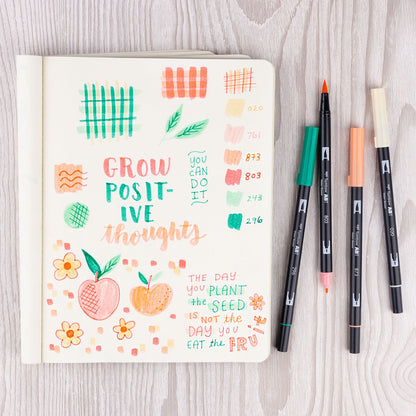 GROW
POSIT-
IVE
thoughts
YOU
CAN
DO
IT
020
761
873
803
243
296
THE DAY
YOU PLANT
the SEED
IS NOT THE
DAY YOU
EAT the FRUI